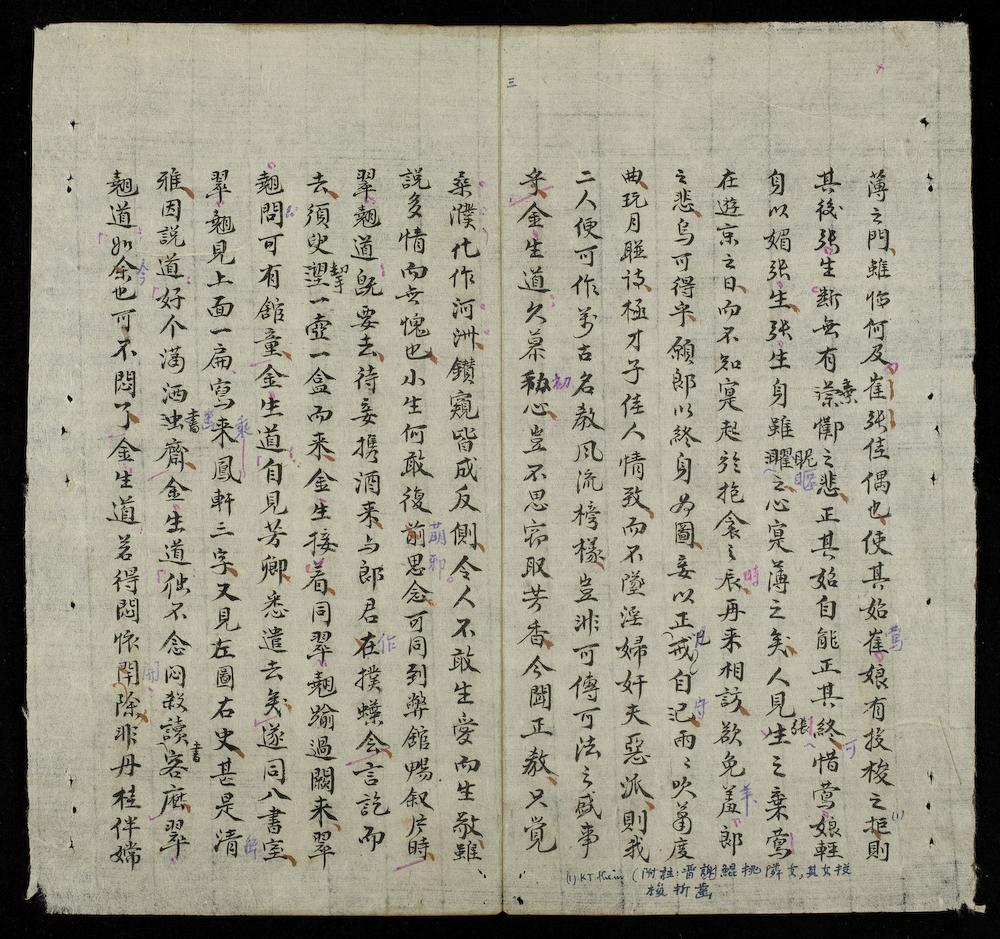 三
薄之門雖悔何及崔張佳偶也使其始崔娘有投梭之拒則
其後張生斷無有溱鄭之悲正其始自能正其終惜鶯娘輕
身以媚張生張生身雖之心寔薄之矣人見生之棄鶯
在遊京之日而不知寔起於抱衾之辰再來相訪欲免羞郎
之悲烏可得乎願郎以終身為圖妾以正戒自氾雨〻吹簫度
曲玩月聯詩極才子佳人情致而不墜淫婦奸夫惡派則我
二人便可作萬古名教風流榜樣豈非可傳可法之盛事
乎金生道久慕心豈不思竊取芳香今聞正教只覺
桑濮化作河洲鑽窺皆成反側令人不敢生愛而生敬雖
說多情而無愧也小生何敢復前思念可同到弊館暢叙片時
翠翹道既要去待妾携酒來与郎君在撲蝶会言訖而
去須臾一壺一盒而來金生接着同翠翹踰過闕來翠
翹問可有館童金生道自見芳卿悉遣去矣遂同入書室
翠翹見上面一扁寫來鳳軒三字又見左圖右史甚是清
雅因説道好个瀟洒齋金生道独不念悶殺讀客庅翠
翹道如余也可不悶了金生道若得悶懷開除非丹桂伴嫦
時
鶯
張
可
羊
守
初
萌
邪
作
乘
書
書
今
開
(1)
(1) KT thêm (附柱:晋謝鯤挑隣女,其女投
梭折齒